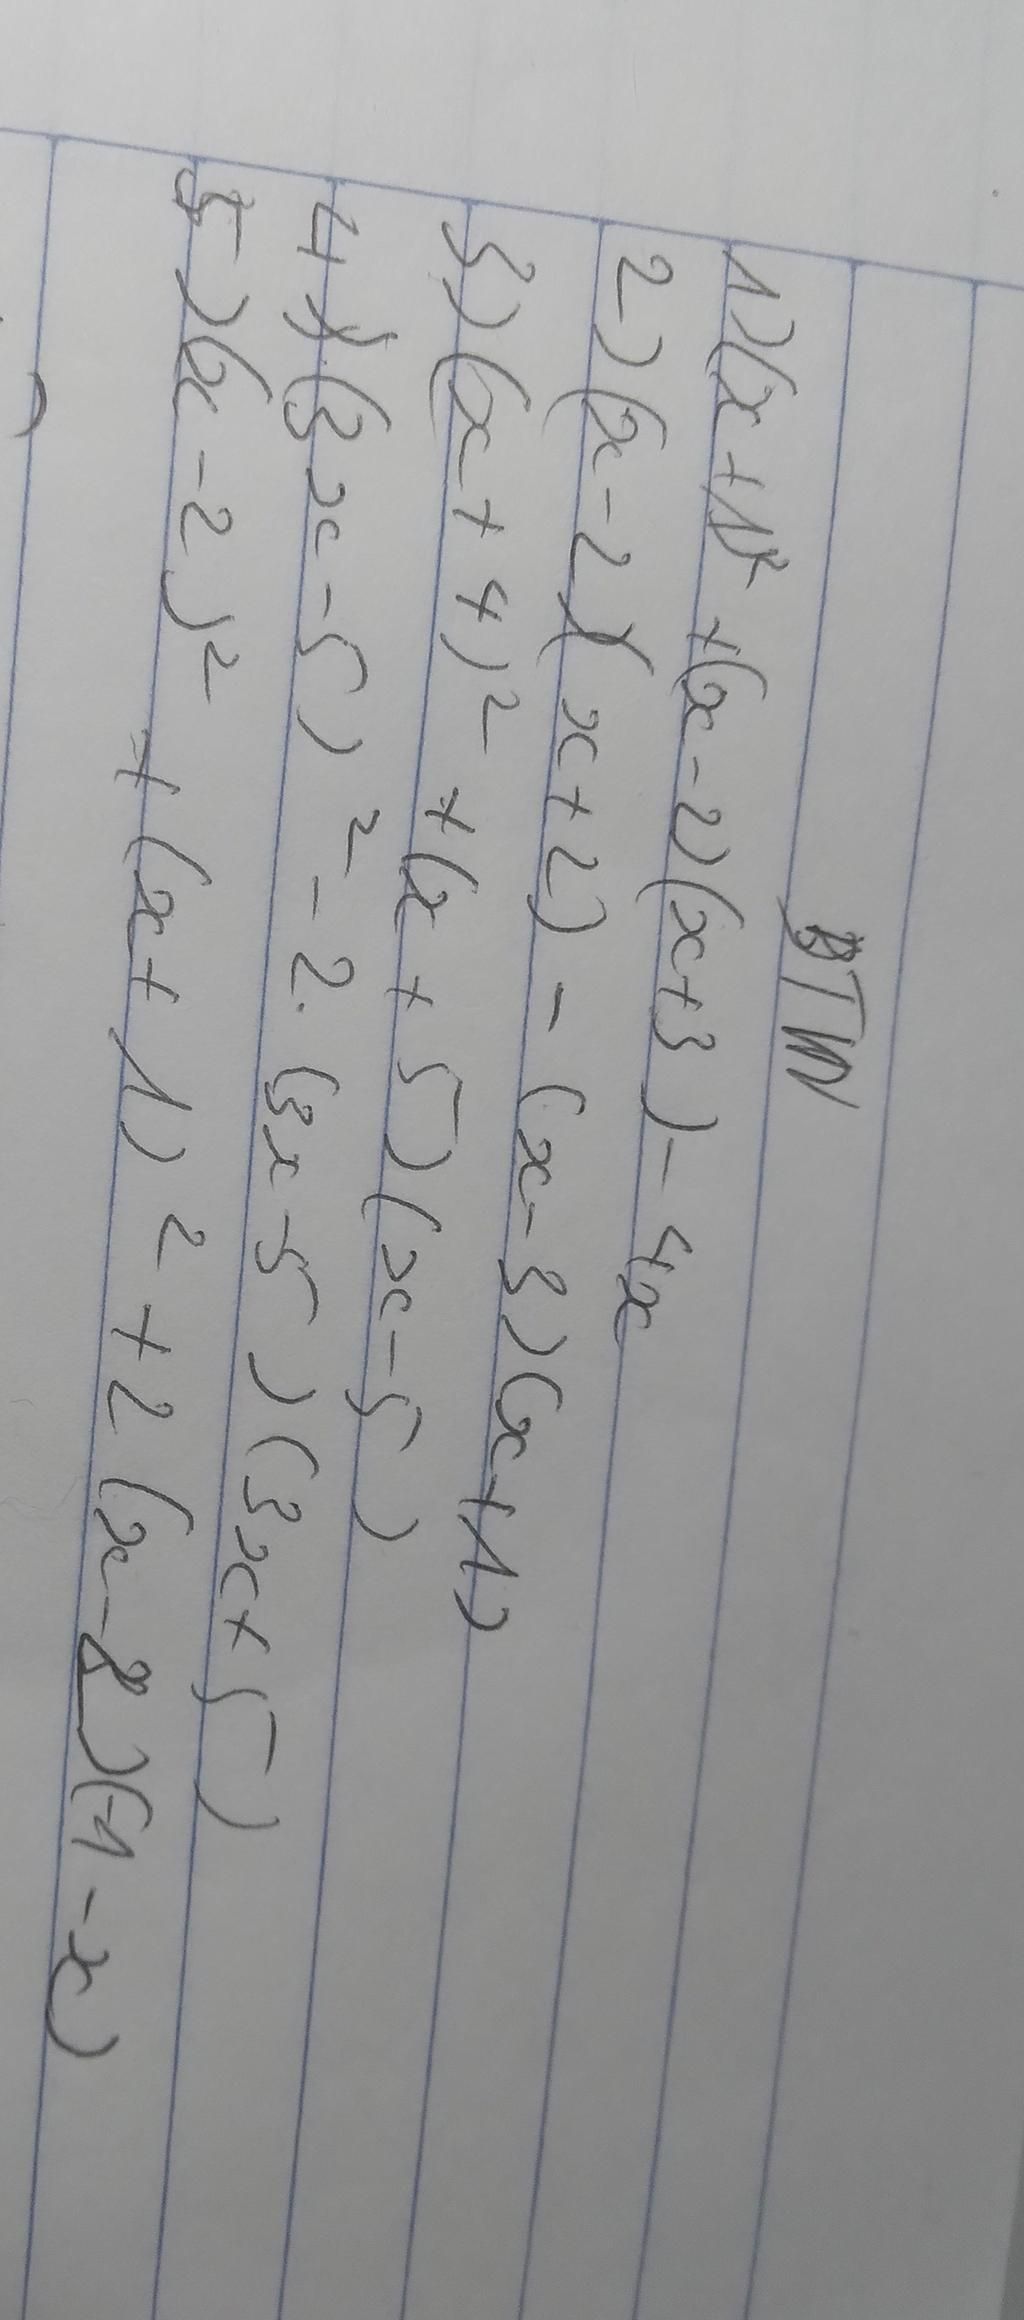 BTVN
1) (x+1)² + (x-2)(x+3) - 4x
2) (x-2)(x+2) - (x-3)(x+1)
3) (x+4)² + (x+5)(x-5)
4) (3x-5)² - 2.(3x-5)(3x+5)
5) (x-2)² + (x+1)² + 2(x-2)(-1-x)